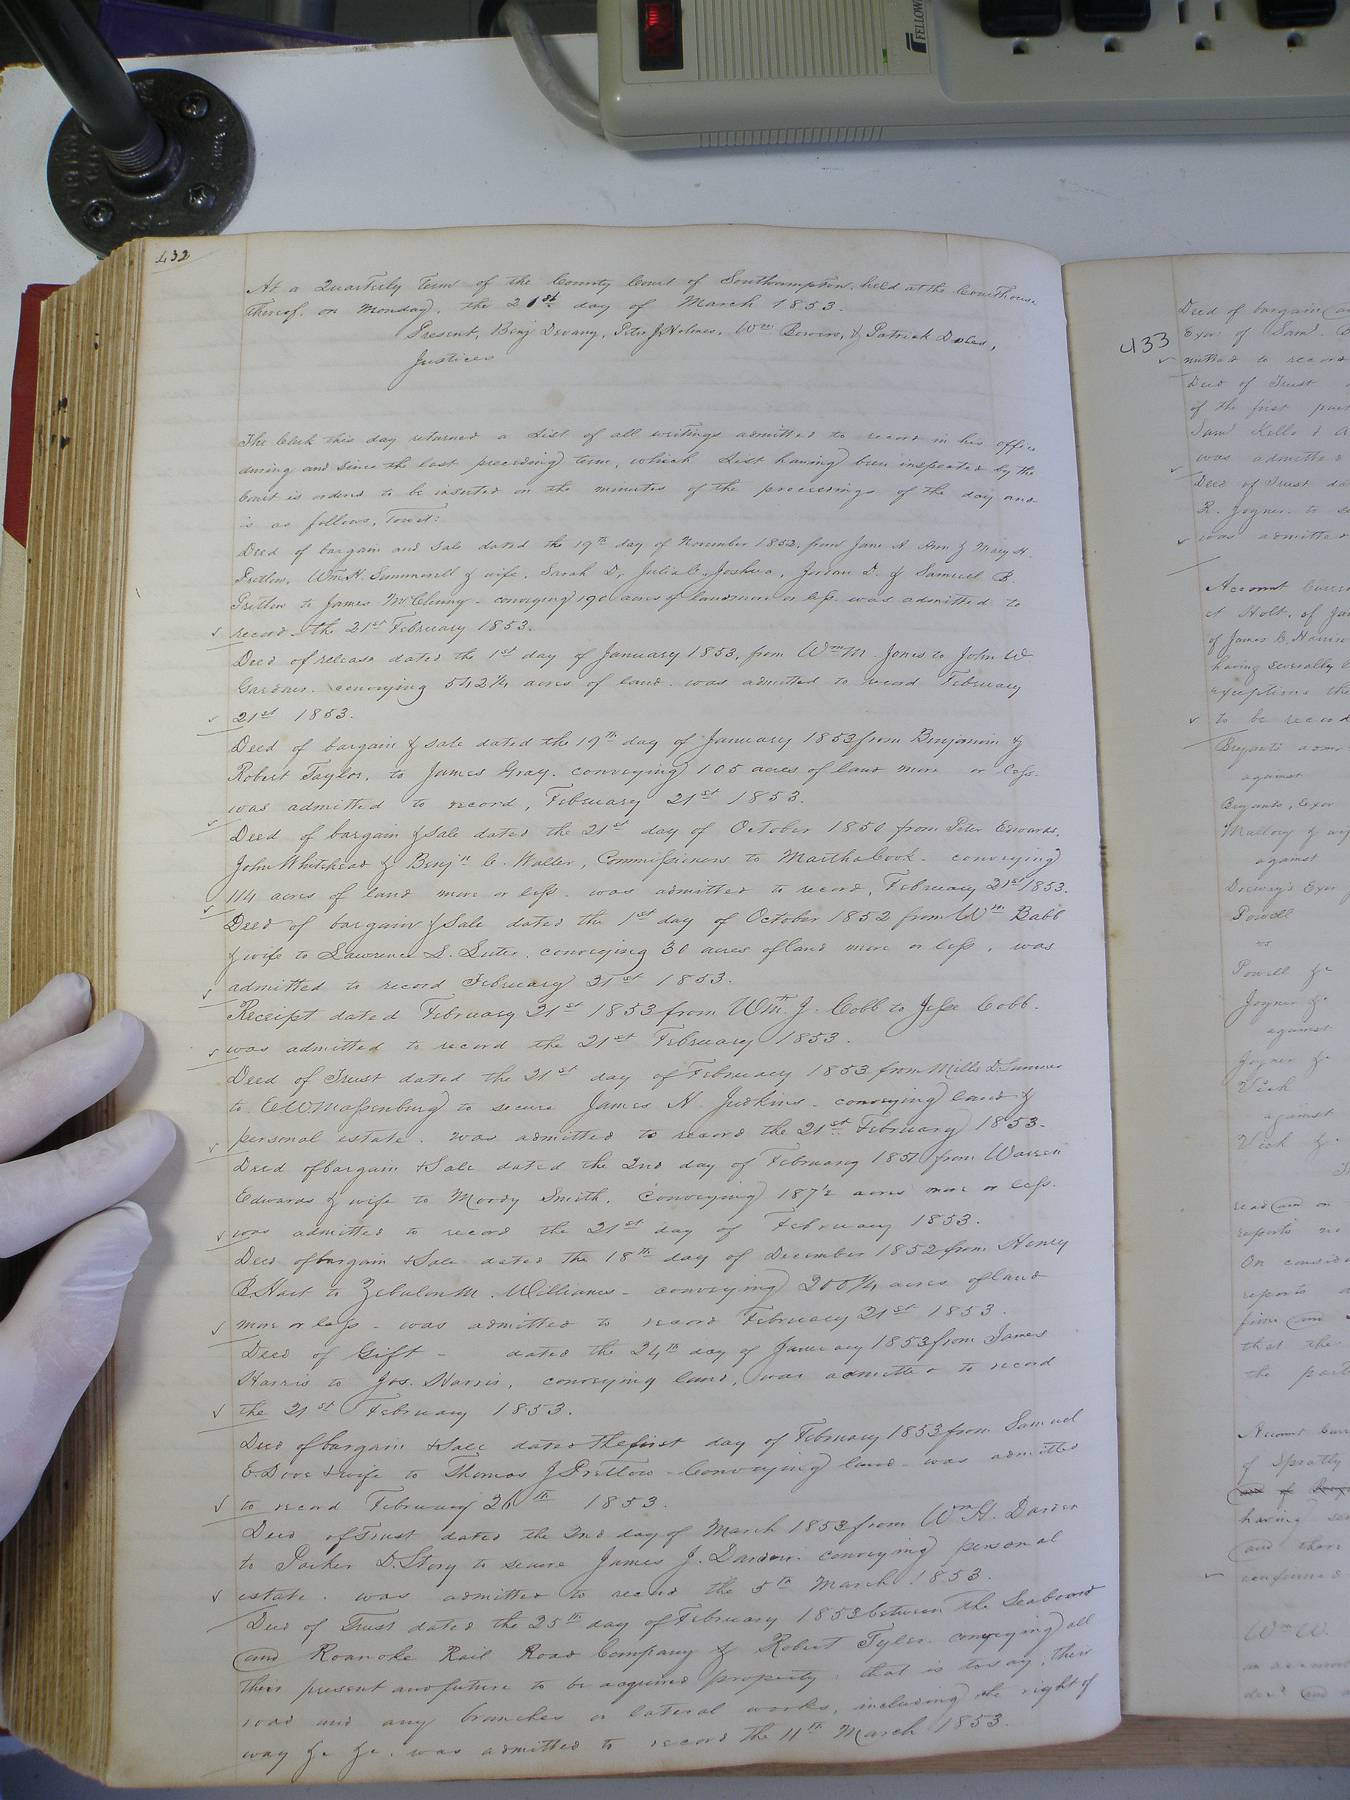 432
At a Quarterly Term of the County Court of Southampton, held at the Courthouse
thereof, on Monday, the 21st day of March 1853.
Present, Benj Devany, Peter J Holmes, Wm &
Patrick Doles,
Justices
The Clerk this day returned a List of all writings admitted to record in his office
during and since the last preceding term, which List having been inspected by the
Court is orderd to be inserted on the minutes of the proceedings of the day and
is as follows, Towit:
Deed of bargain and sale dated the 19th day of November 1852, from Jane A Ann & Mary H.
Pretlow, Wm H. Summerell & wife, Sarah D, Julia C, Joshua, Jordan D. & Samuel B.
Pretlow to James McClenny - conveying 190 acres of land more or less. was admitted to
record the 21st February 1853.
Deed of release dated the 1st day of January 1853, from Wm M. Jones to John W
Gardner. conveying 542¼ acres of land. was admitted to record February
21st 1853.
Deed of bargain & sale dated the 19th day of January 1853 from Benjamin &
Robert Taylor, to James Gray. conveying 105 acres of land more or less.
was admitted to record, February 21st 1853.
Deed of bargain & sale dated the 21st day of October 1850 from Peter Edwards,
John Whitehead & Benjn C. Waller, Commissioners to Martha Cook - conveying
114 acres of land more or less. was admitted to record, February 21st 1853.
Deed of bargain & Sale dated the 1st day of October 1852 from Wm Babb
& wife to Lawrence S. Suter. conveying 30 acres of land more or less, was
admitted to record February 21st 1853.
Receipt dated February 21st 1853 from Wm. J. Cobb to Jesse Cobb.
was admitted to record the 21st February 1853.
Deed of Trust dated the 21st day of February 1853 from Mills D
to E W Massenburg to secure James N Judkins - conveying land &
personal estate. was admitted to record the 21st February 1853.
Deed of bargain & Sale dated the 2nd day of February 1851 from Warren
Edwards & wife to Moody Smith. Conveying 187½ acres more or less.
was admitted to record the 21st day of February 1853.
Deed of bargain & Sale dated the 18th day of December 1852 from Henry
B. Hart to Zebulon M. Williams - conveying 200¼ acres of land
more or less - was admitted to record February 21st 1853.
Deed of Gift - dated the 24th day of January 1853 from James
Harris to Jos. Harris, conveying land, was admitted to record
the 21st February 1853.
Deed of bargain & Sale dated the first day of February 1853 from Samuel
E. Dove & wife to Thomas J Pretlow - Conveying land - was admitted
to record February 26th 1853.
Deed of Trust dated the 2nd day of March 1853 from Wm H. Darden
to Parker D. Story to secure James J. Darden. conveying personal
estate. was admitted to record the 5th March 1853.
Deed of Trust dated the 25th day of February 1853 between the Seaboard
and Roanoke Rail Road Company & Robert Tyler. conveying all
their present and future to be acquired property. that is to say; their
road and any branches or lateral works, including the right of
way &c &c. was admitted to record the 11th March 1853.
433
Deed of bargain
Exor of Saml. B
mitted to record
Deed of Trust
of the first part
Saml Kello &
was admitted
Deed of Trust da
R. Joyner. to se
was admitted
Account Curre
A Holt, of Ja
of James C. Harris
having severally
exceptions the
to be record
Bryants adm
against
Bryants, Exor
Mallory & wif
against
Drewry's Exor
Powell
vs
Powell &c
Joyner &c
against
Joyner &c
Vick
against
Vick &c
read and on
reports
On conside
reports a
firm and
that the
the part
Account Curr
of Spratly
having se
and there
confirmed
Wm W.
an account
and
FELLOW